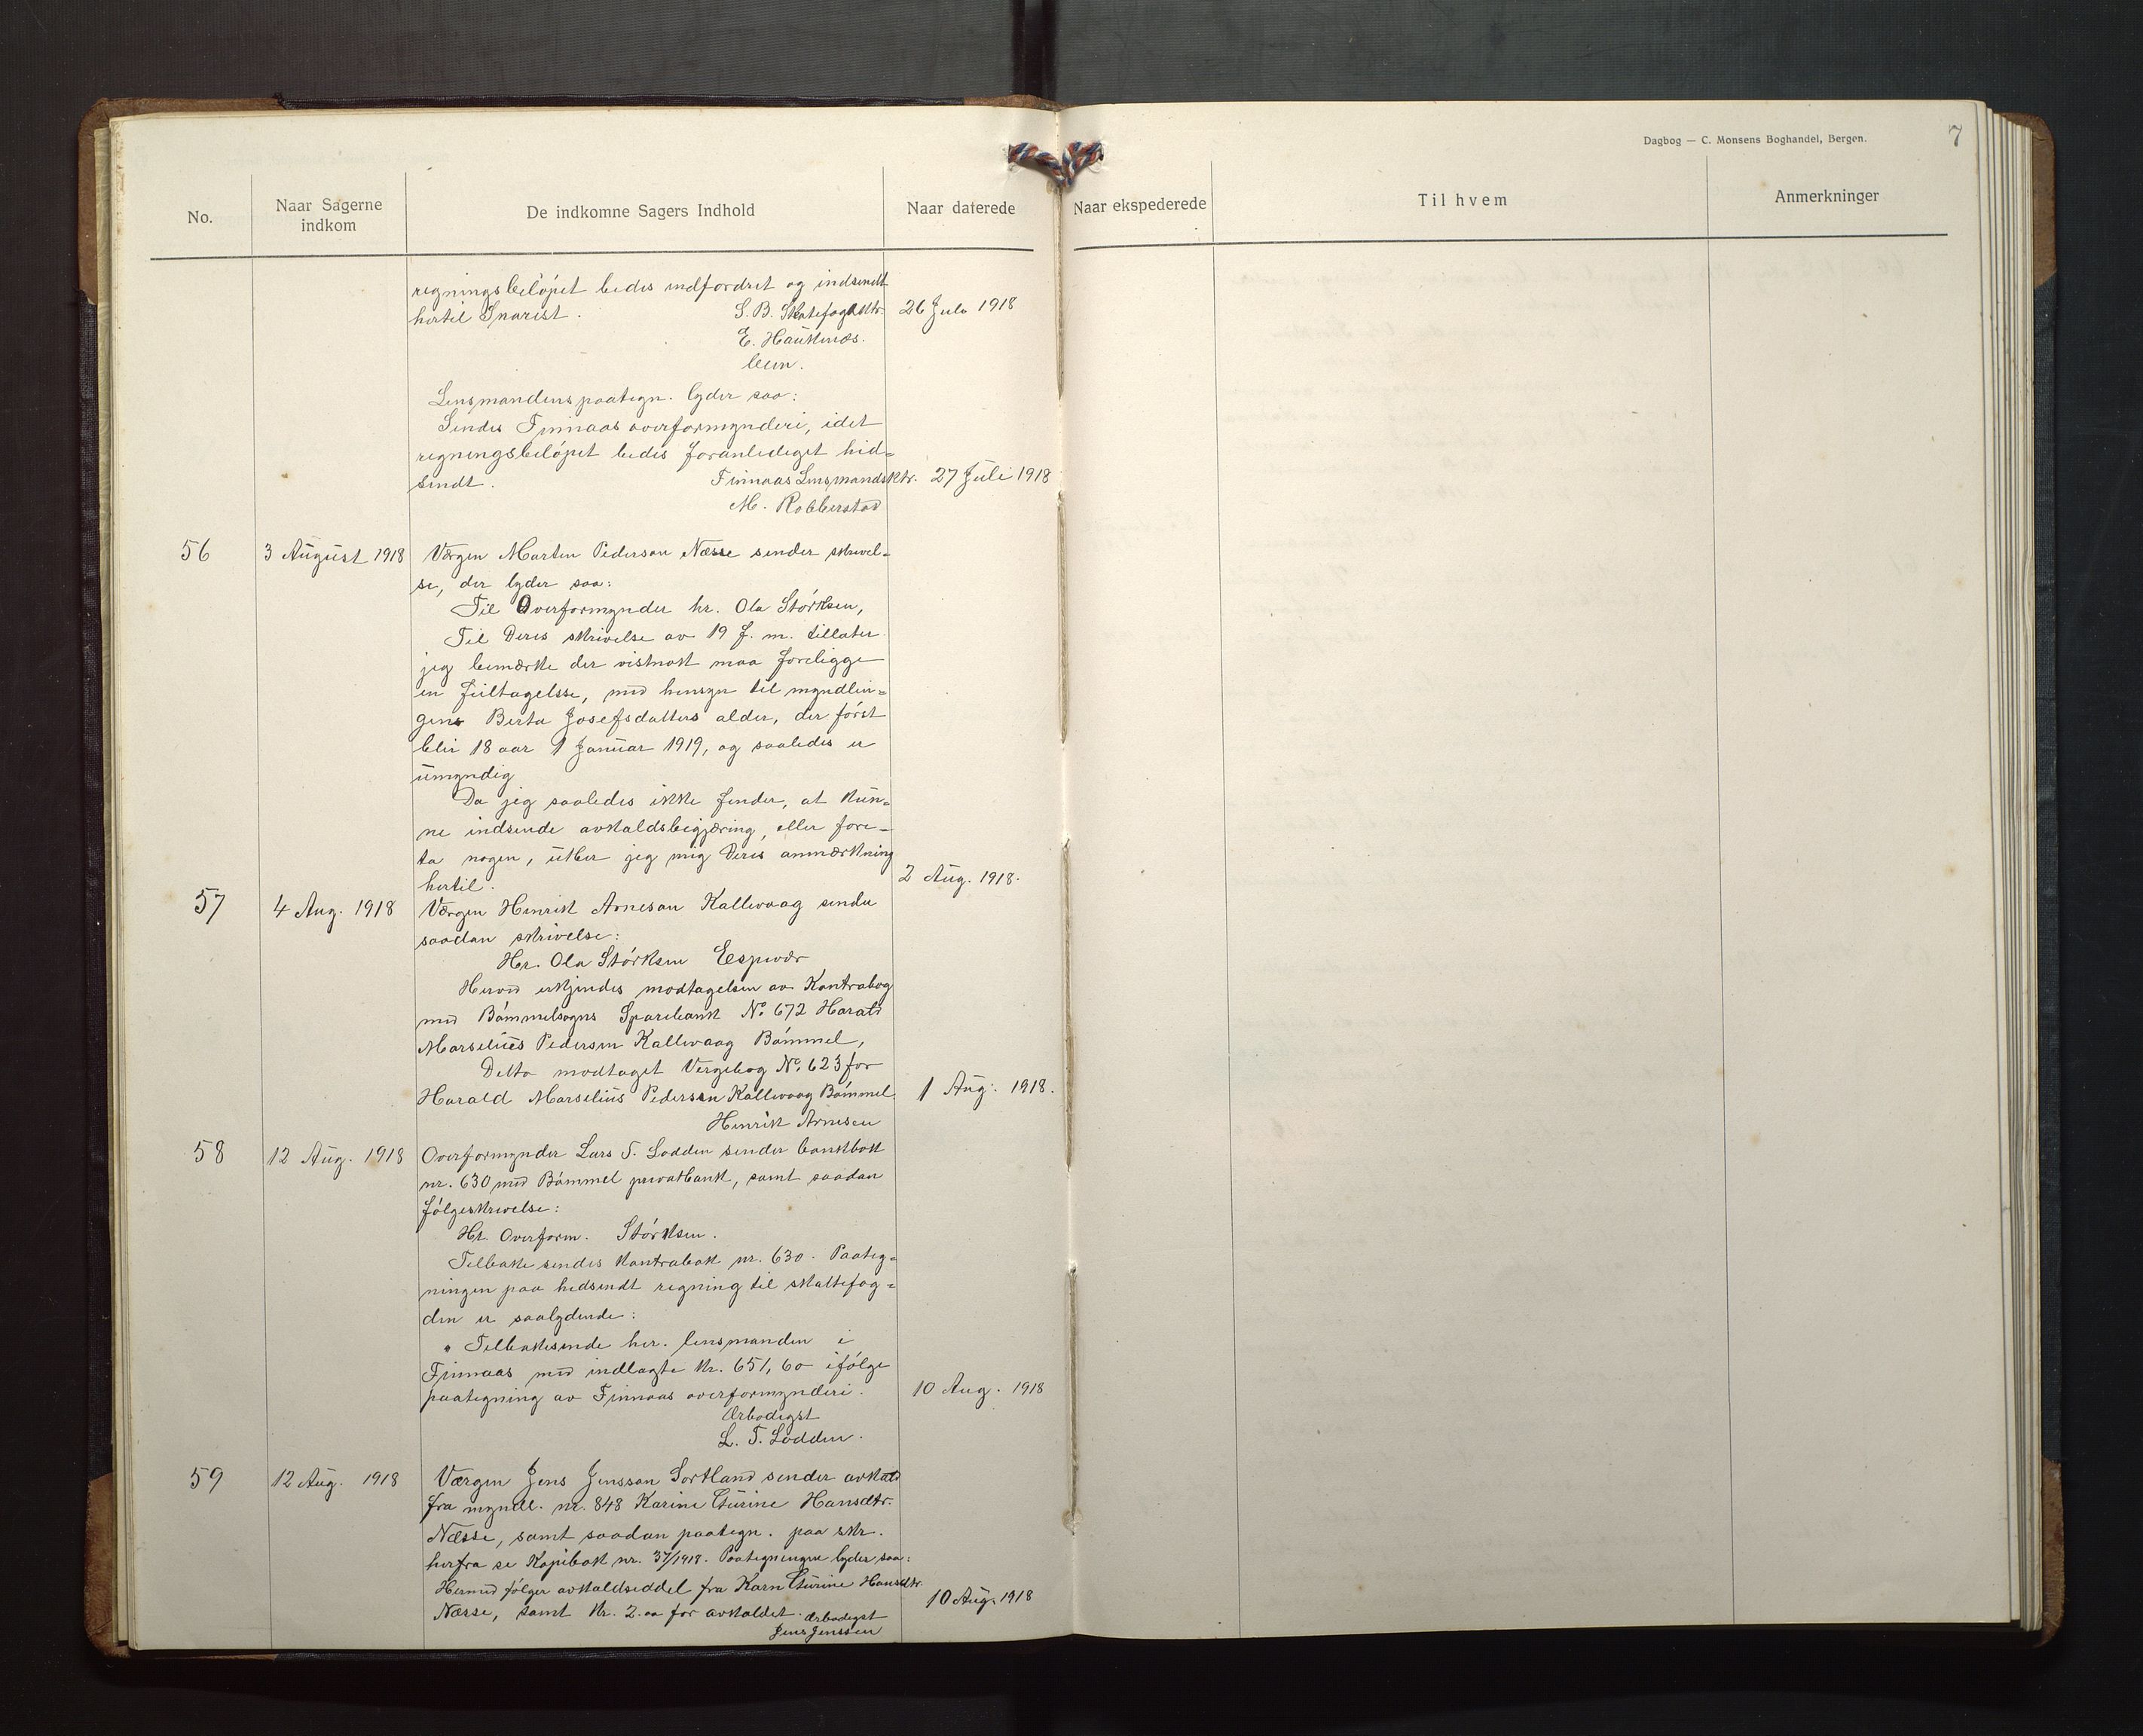 Dagbog — C. Monsens Boghandel, Bergen.
7
No.
Naar Sagerne indkom
De indkomne Sagers Indhold
Naar daterede
Naar ekspederede
Til hvem
Anmerkninger
regningsbeløpet bedes indfordret og indsendt
hertil snarest. S. B. Skatefogdktr. 26 Juli 1918
E. Hauknæs.
Lensmandens paategn. lyder saa:
Sendes Finnaas overformynderi, idet
regningsbeløpet bedes foranlediget hid=
sendt. Finnaas Lensmandsktr. 27 Juli 1918
M. Robberstad
56 3 August 1918 Værgen Marten Pederson Næsse sender skrivel=
se, der lyder saa:
Til Overformynder hr. Ola Størksen,
Til Deres skrivelse av 19 f. m. tillater
jeg bemærke der vistnok maa foreligge
en feiltagelsse, med hensyn til myndlin=
gens Berta Josefsdatters alder, der først
blir 18 aar 1 Januar 1919, og saaledes er
umyndig
Da jeg saaledes ikke finder, at kun=
ne indsende avkaldsbegjæring, eller fore=
ta nogen, utber jeg mig Deres anmærkning
hertil. 2 Aug. 1918.
57 4 Aug. 1918 Værgen Henrik Arneson Kallevaag sender
saadan skrivelse:
Hr. Ola Størksen Espevær
Herved erkjendes modtagelsen av Kontrabog
med Bømmelsogns Sparebank No 672 Harald
Marselius Pedersen Kallevaag Bømmel,
Detto modtaget Vergebog No. 623 for
Harald Marselius Pedersen Kallevaag Bømmel. 1 Aug. 1918.
Henrik Arnesen
58 12 Aug. 1918 Overformynder Lars T. Lodden sender bankbok
nr. 630 med Bømmel privatbank, samt saadan
følgeskrivelse:
Hr. Overform. Størksen.
Tilbakesendes Kontrabok nr. 630. Paateg=
ningen paa hedsendt regning til skattefog=
den er saalydende:
" Tilbakesende her. lensmanden i
Finnaas med indlagte kr. 651,60 ifølge
paategning av Finnaas overformynderi. 10 Aug. 1918
Ærbødigst
L. T. Lodden.
59 12 Aug. 1918 Værgen Jens Jensson Sortland sender avkald
fra myndl. nr. 848 Karine Turine Hansdtr.
Næsse, samt saadan paategn. paa skr.
herfra se Kopibok nr. 37/1918. Paategningen lyder saa:
Hermed følger avkaldseddel fra Karn Turine Hansdtr.
Næsse, samt kr. 2.00 for avkaldet. Ærbødigst 10 Aug. 1918
Jens Jenssen